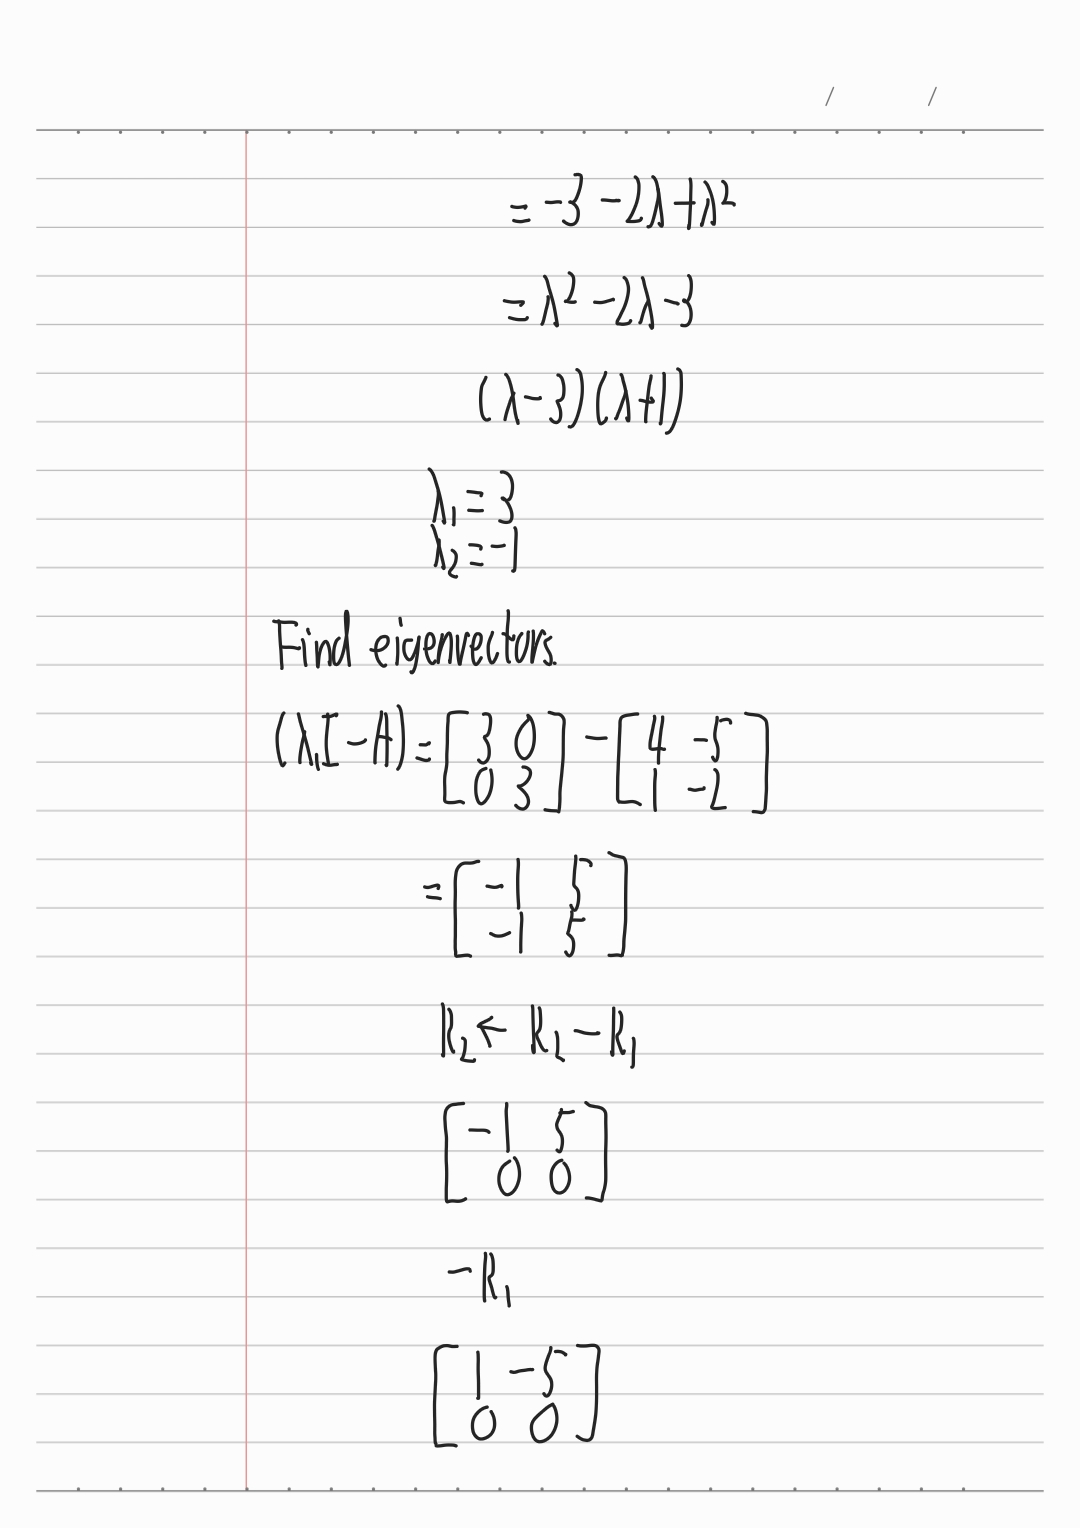 = -3 - 2λ + λ²
= λ² - 2λ - 3
(λ - 3)(λ + 1)
λ₁ = 3
λ₂ = -1
Find eigenvectors.
(λ₁I - A) = [3 0; 0 3] - [4 -5; 1 -2]
= [-1 5; -1 5]
R₂ ← R₂ - R₁
[-1 5; 0 0]
-R₁
[1 -5; 0 0]